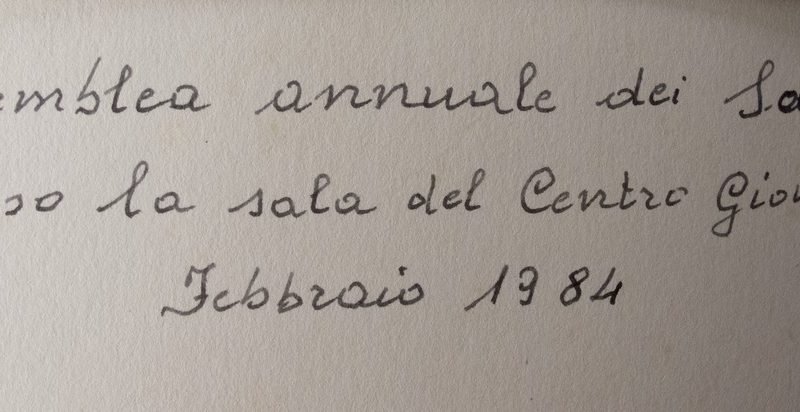 emblea annuale dei So
so la sala del Centro Giov
Febbraio 1984